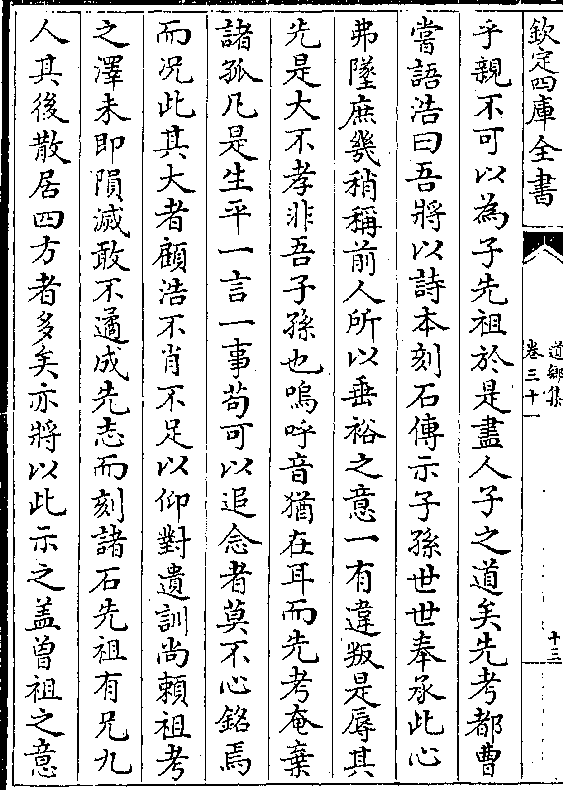 欽定四庫全書
道鄉集
卷三十一
十三
乎親不可以為子先祖於是盡人子之道矣先考都曹
嘗語浩曰吾將以詩本刻石傳示子孫世世奉承此心
弗墜庶㡬稍稱前人所以垂裕之意一有違叛是辱其
先是大不孝非吾子孫也嗚呼音猶在耳而先考奄棄
諸孤凡是生平一言一事苟可以追念者莫不心銘焉
而况此其大者顧浩不肖不足以仰對遺訓尚賴祖考
之澤未即隕滅敢不遹成先志而刻諸石先祖有兄九
人其後散居四方者多矣亦將以此示之盖曾祖之意